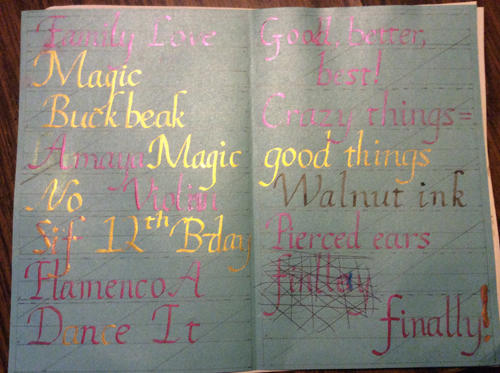 Family Love
Magic
Buckbeak
Amaya Magic
No Violin
Sif 12th B-day
Flamenco A
Dance It
Good, better,
best!
Crazy things=
good things
Walnut ink
Pierced ears
finally!